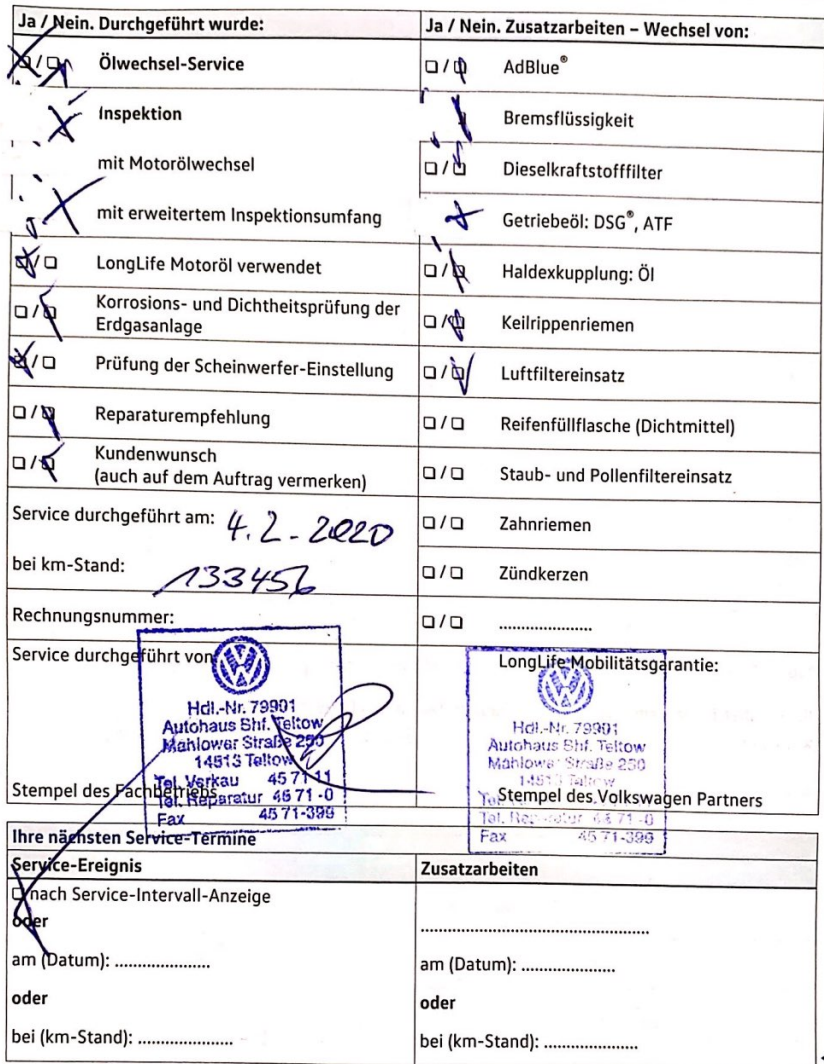 Ja / Nein. Durchgeführt wurde:
Ölwechsel-Service
Inspektion
mit Motorölwechsel
mit erweitertem Inspektionsumfang
LongLife Motoröl verwendet
Korrosions- und Dichtheitsprüfung der
Erdgasanlage
Prüfung der Scheinwerfer-Einstellung
Reparaturempfehlung
Kundenwunsch
(auch auf dem Auftrag vermerken)
Service durchgeführt am: 4.2.-2020
bei km-Stand: 133456
Rechnungsnummer:
Service durchgeführt von
Hdl.-Nr. 79901
Autohaus Bhf. Teltow
Mahlower Straße 250
14513 Teltow
Tel. Verkau 45 71 11
Tel. Reparatur 45 71 -0
Fax 45 71-399
Stempel des Fachbetriebs
Ja / Nein. Zusatzarbeiten – Wechsel von:
AdBlue®
Bremsflüssigkeit
Dieselkraftstofffilter
Getriebeöl: DSG®, ATF
Haldexkupplung: Öl
Keilrippenriemen
Luftfiltereinsatz
Reifenfüllflasche (Dichtmittel)
Staub- und Pollenfiltereinsatz
Zahnriemen
Zündkerzen
.....................
LongLife Mobilitätsgarantie:
Hdl.-Nr. 79901
Autohaus Bhf. Teltow
Mahlower Straße 250
14513 Teltow
Stempel des Volkswagen Partners
Tel. Reparatur 45 71 -0
Fax 45 71-399
Ihre nächsten Service-Termine
Service-Ereignis
nach Service-Intervall-Anzeige
oder
am (Datum): .....................
oder
bei (km-Stand): .....................
Zusatzarbeiten
..................................................
am (Datum): .....................
oder
bei (km-Stand): .....................